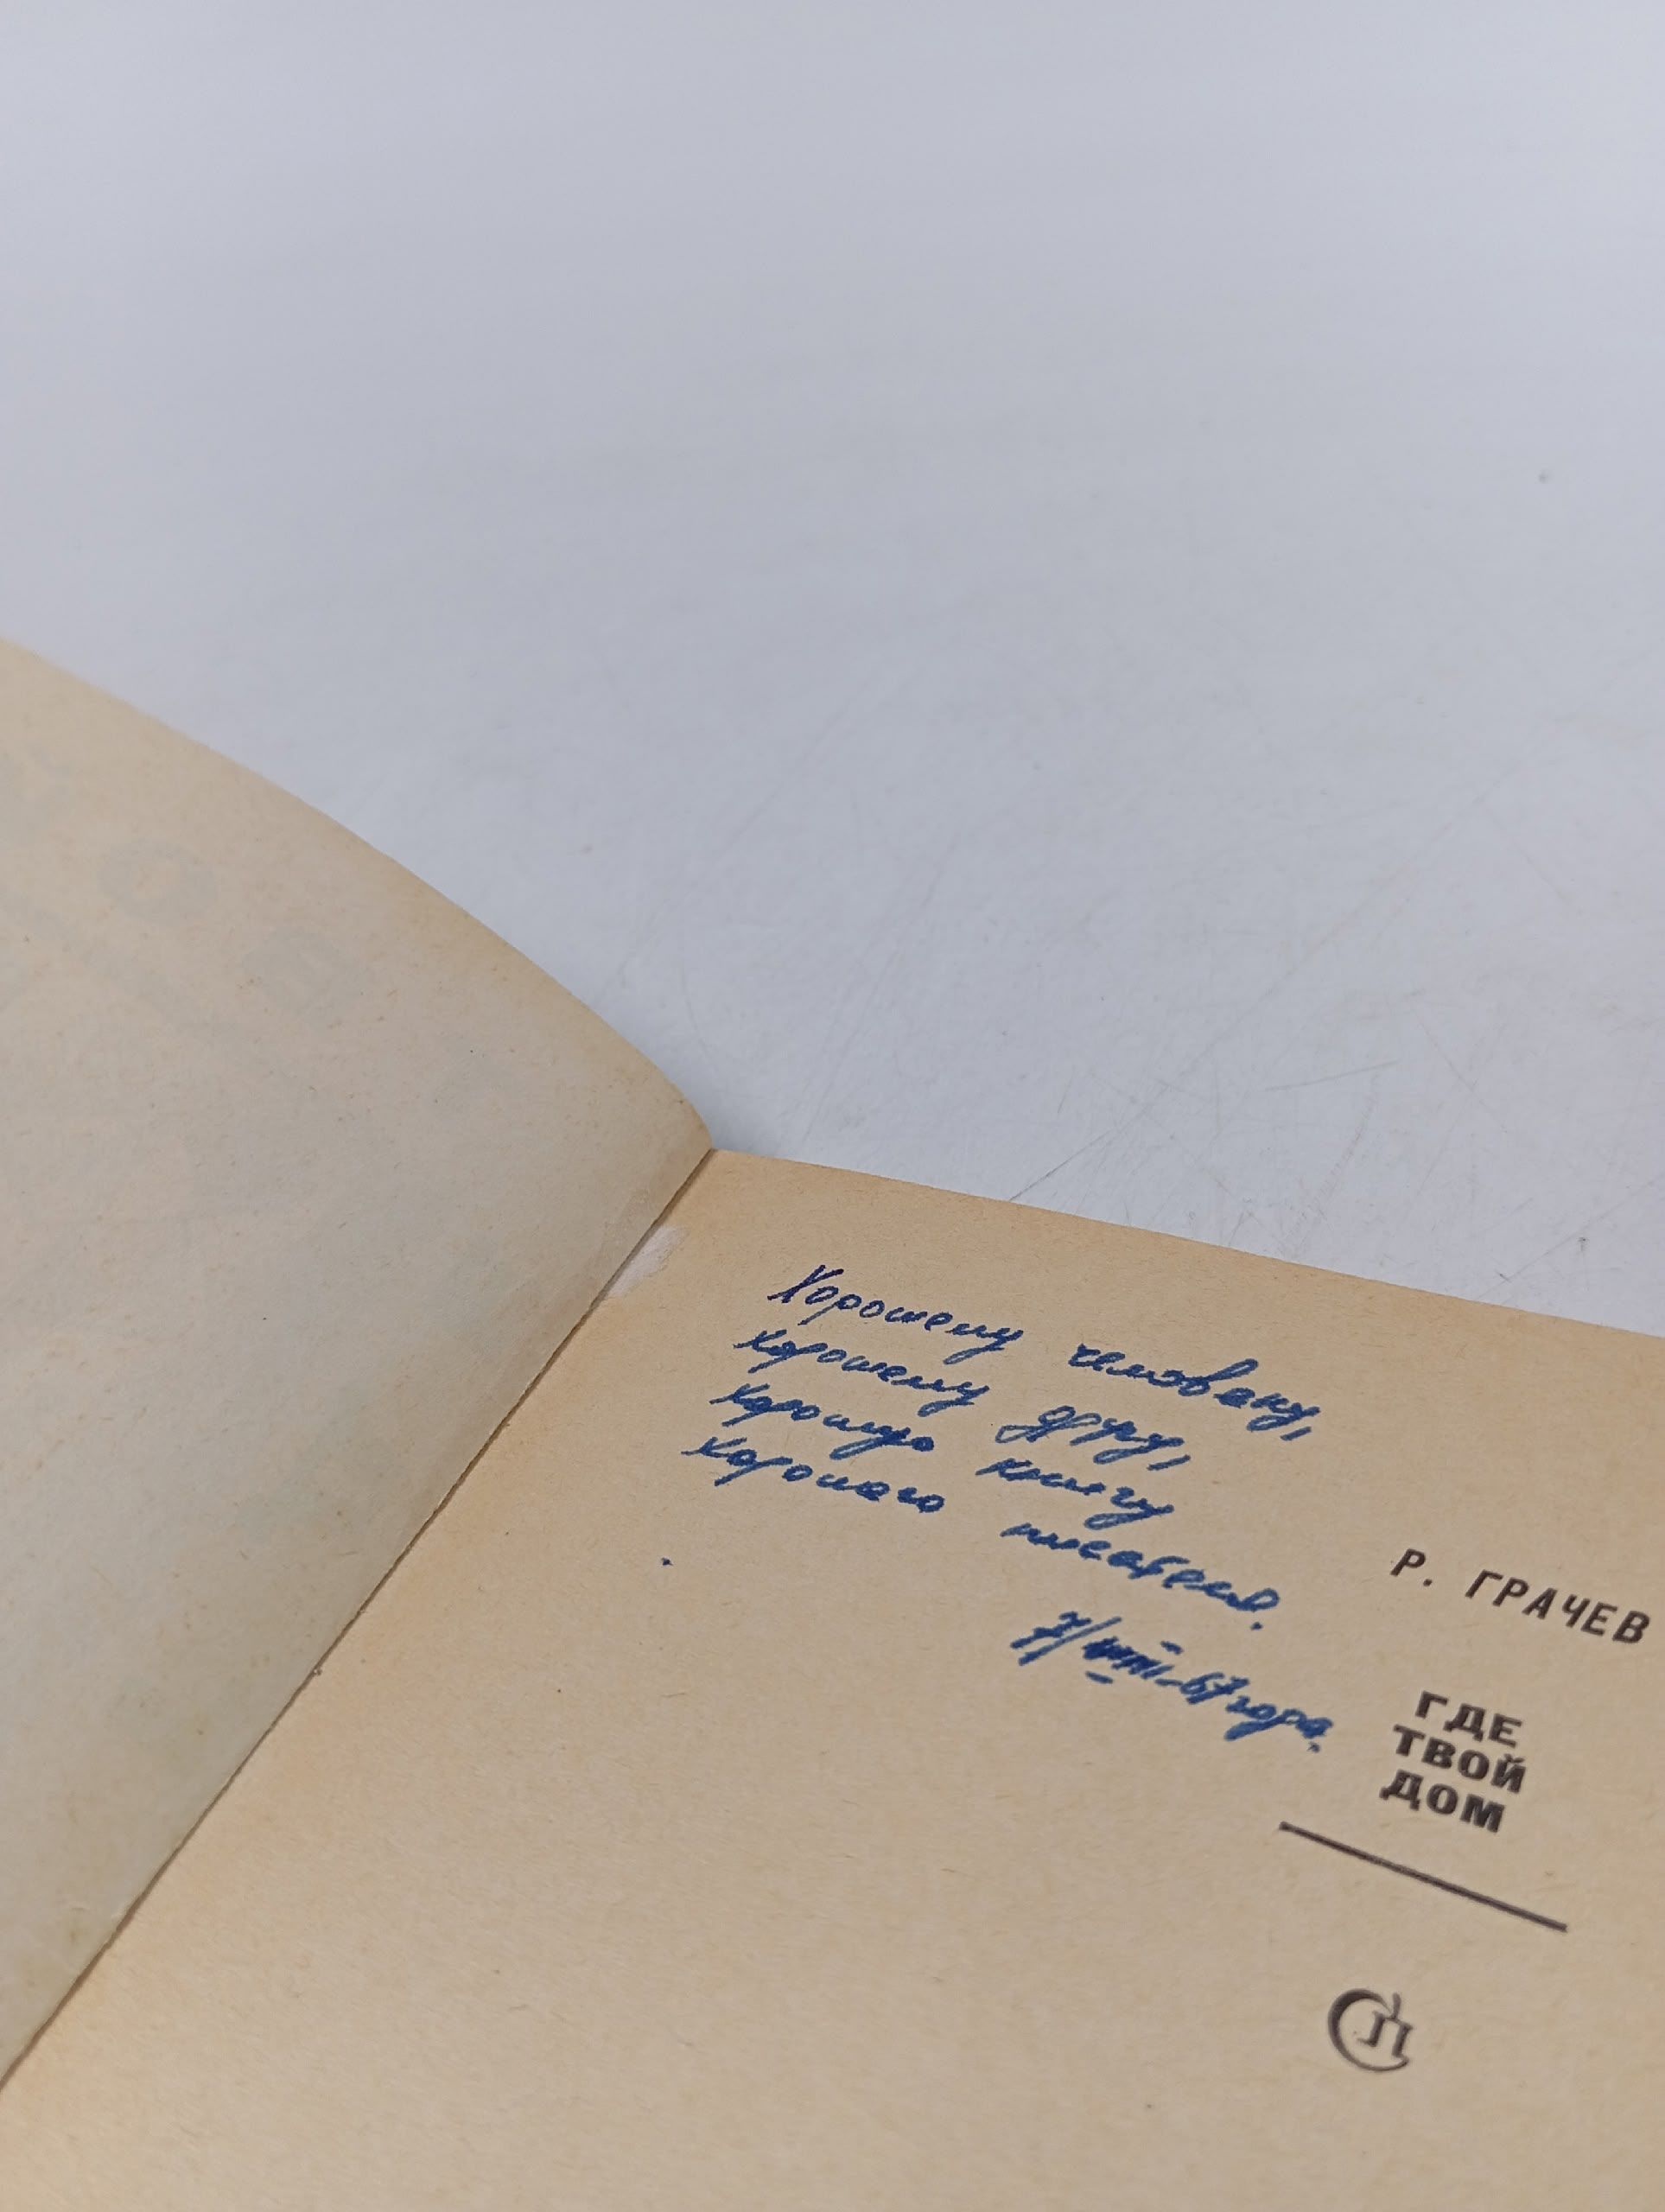 Хорошему человеку,
хорошему другу,
хорошую книгу
хорошего писателя.
7/VIII-67 года.
Р. ГРАЧЕВ
ГДЕ
ТВОЙ
ДОМ
СП